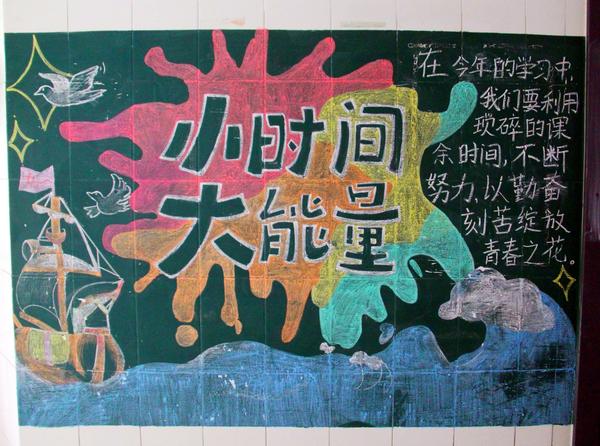 小时间
大能量
在今年的学习中,
我们要利用
琐碎的课
余时间,不断
努力,以勤奋
刻苦绽放
青春之花。